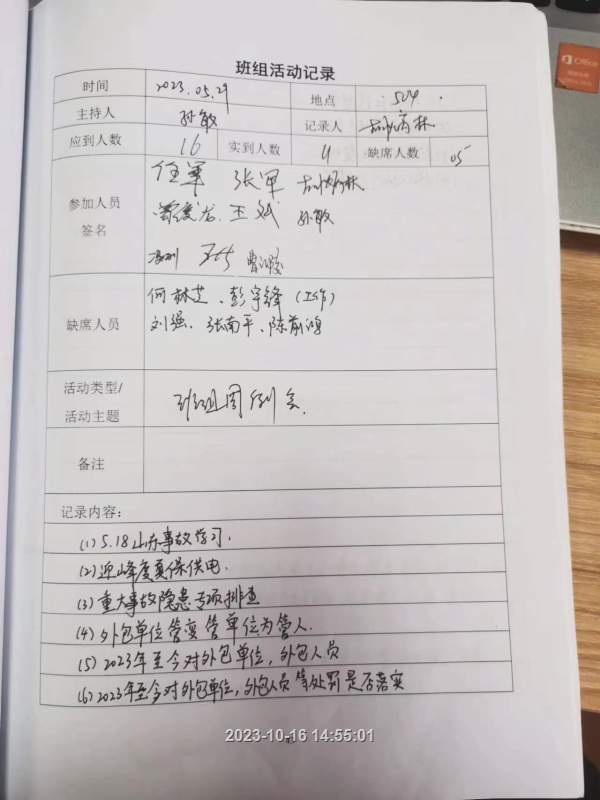 班组活动记录
时间 2023.05.29 地点 504.
主持人 孙敏 记录人
应到人数 16 实到人数 11 缺席人数 05
任军 张军
参加人员 王斌 孙敏
签名
何林芝、彭宇锋(工作)
缺席人员 刘强、张南平、陈前鸿
活动类型/
活动主题 班组周例会.
备注
记录内容:
(1) 5.18山东事故学习.
(2) 迎峰度夏保供电.
(3) 重大事故隐患专项排查
(4) 外包单位管变管单位为管人.
(5) 2023年至今对外包单位,外包人员
(6) 2023年至今对外包单位,外包人员等处罚是否落实
2023-10-16 14:55:01
Office